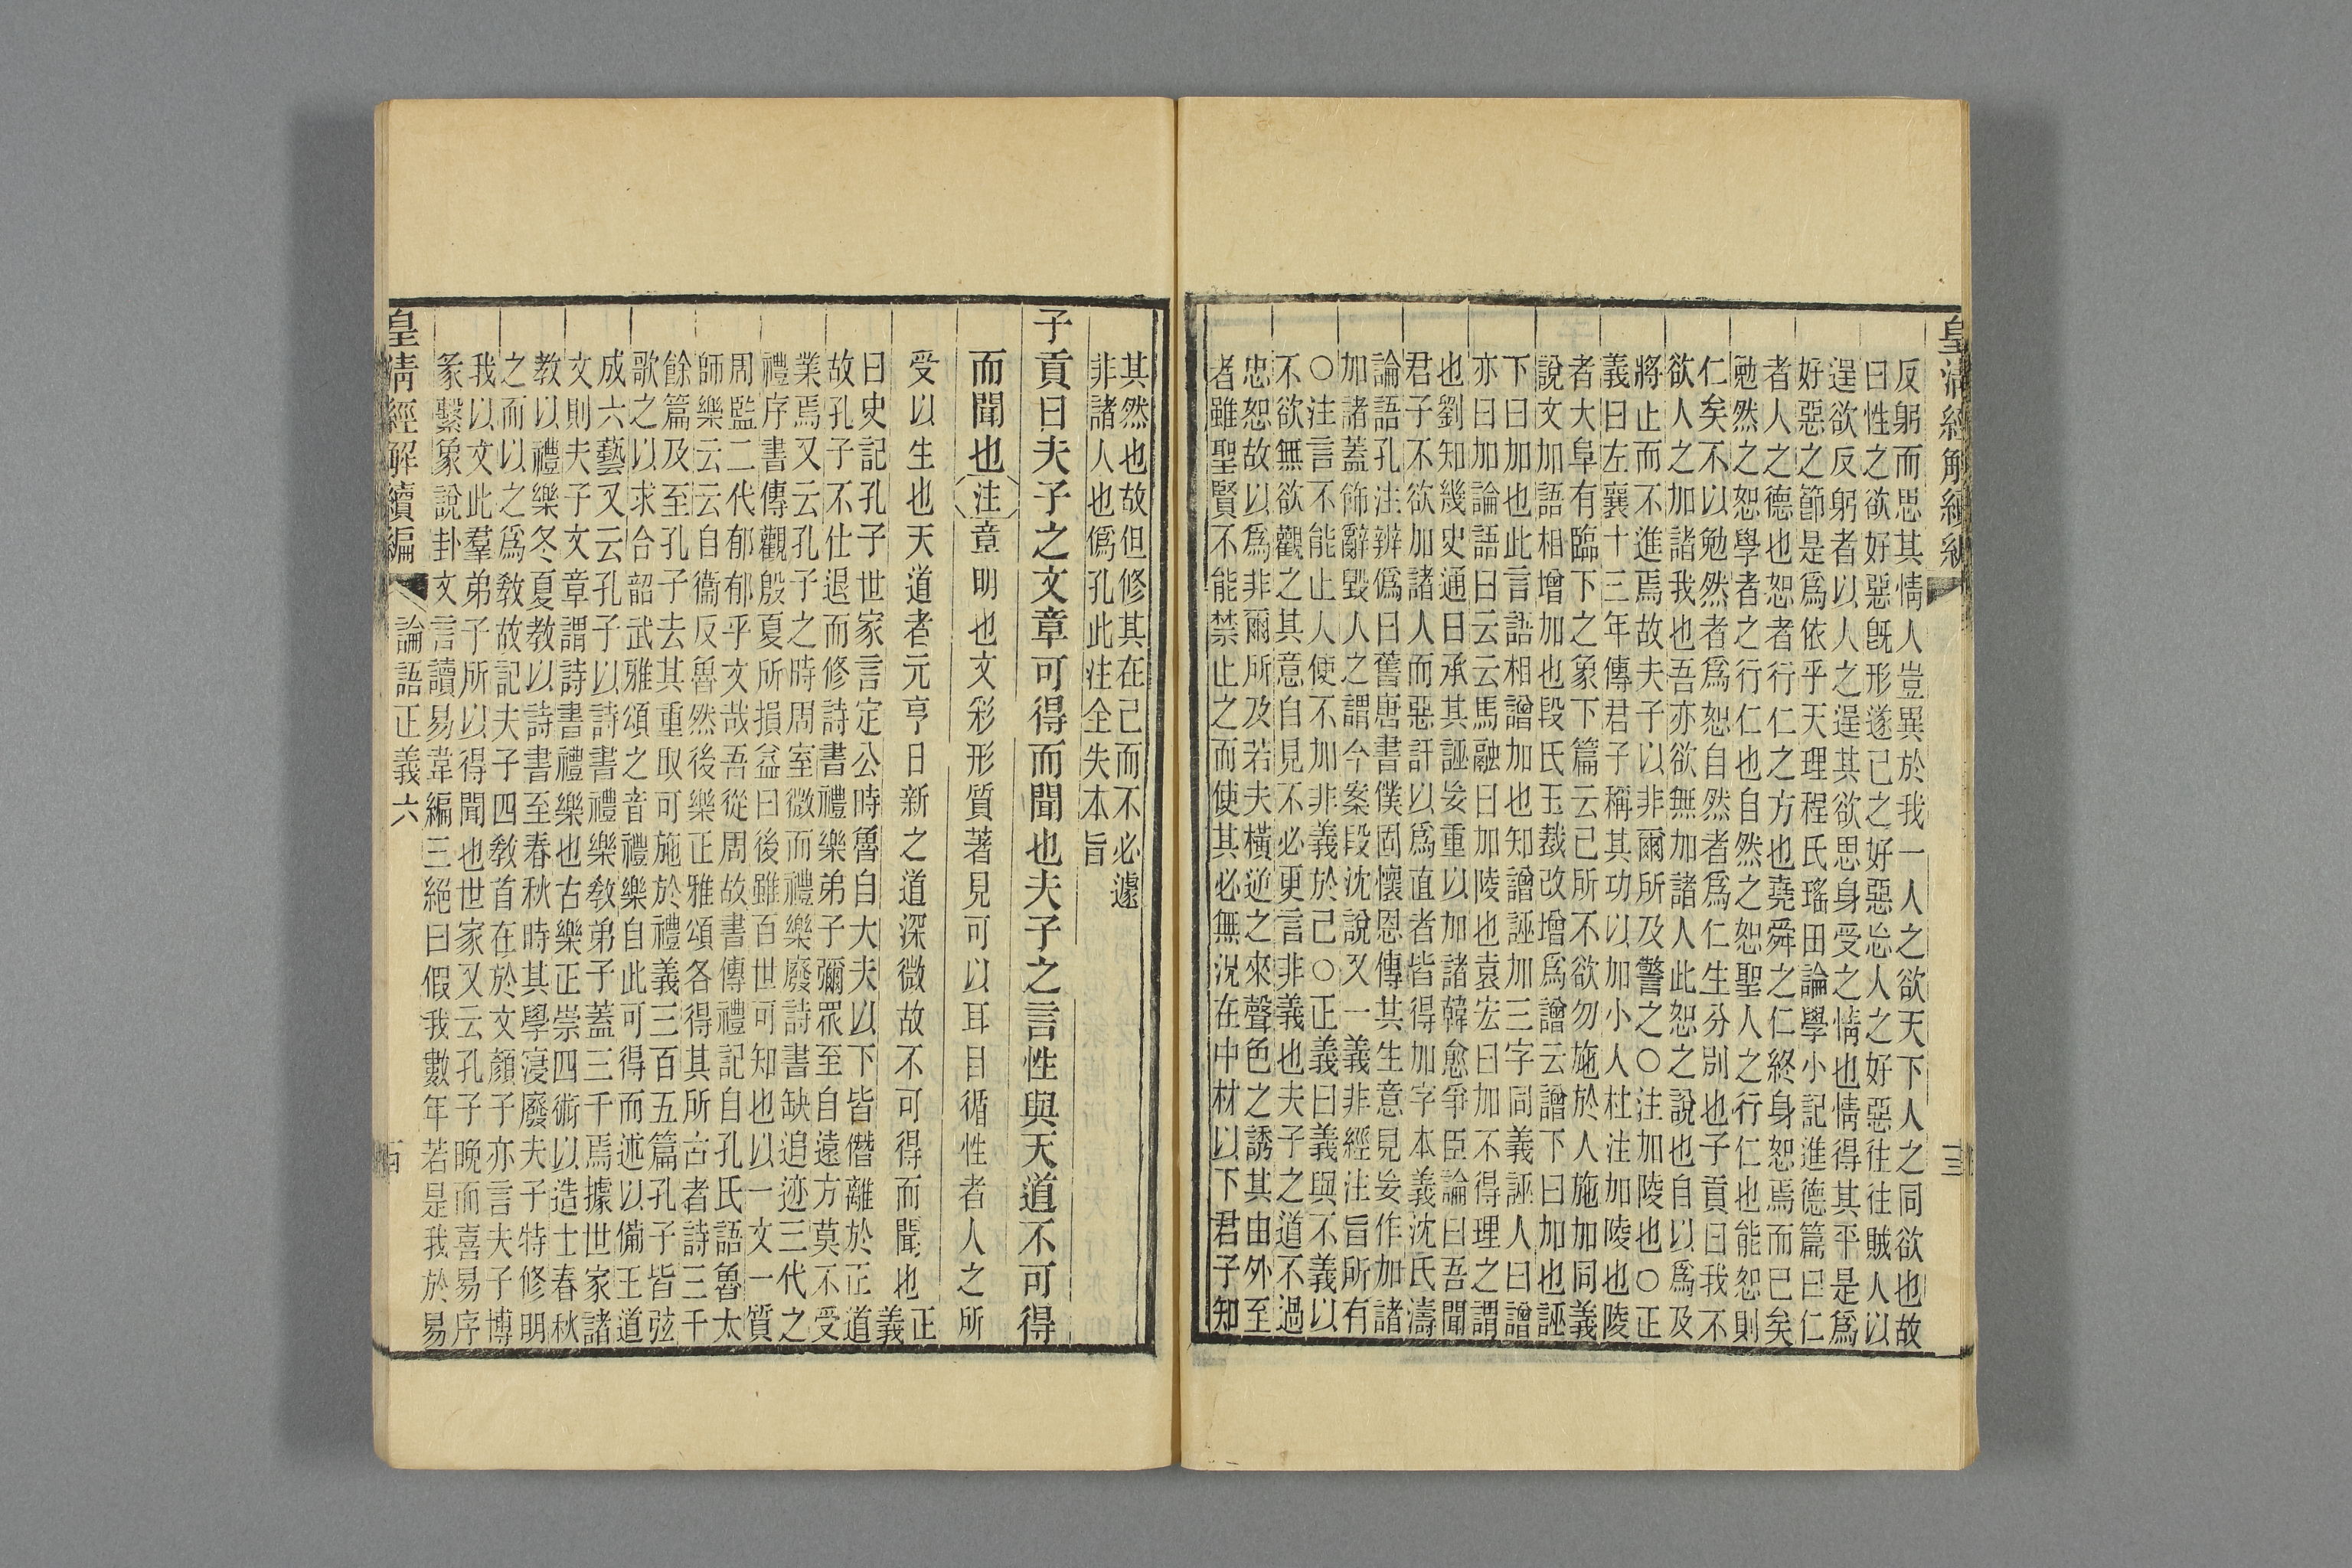 皇清經解續編
十三
反躬而思其情人豈異於我一人之欲天下人之同欲也故
曰性之欲好惡旣形遂已之好惡忘人之好惡往往賊人以
逞欲反躬者以人之逞其欲思身受之情也情得其平是爲
好惡之節是爲依乎天理程氏瑤田論學小記進德篇曰仁
者人之德也恕者行仁之方也堯舜之仁終身恕焉而已矣
勉然之恕學者之行仁也自然之恕聖人之行仁也能恕則
仁矣不以勉然者爲恕自然者爲仁生分別也子貢曰我不
欲人之加諸我也吾亦欲無加諸人此恕之說也自以爲及
將止而不進焉故夫子以非爾所及警之○注加陵也○正
義曰左襄十三年傳君子稱其功以加小人杜注加陵也陵
者大阜有臨下之象下篇云已所不欲勿施於人施加同義
說文加語相增加也段氏玉裁改增爲譄云譄下曰加也誣
下曰加也此言語相譄加也知譄誣加三字同義誣人曰譄
亦曰加論語曰云云馬融曰加陵也袁宏曰加不得理之謂
也劉知幾史通曰承其誣妄重以加諸韓愈爭臣論曰吾聞
君子不欲加諸人而惡訐以爲直者皆得加字本義沈氏濤
論語孔注辨僞曰舊唐書僕固懷恩傳其生意見妄作加諸
加諸蓋飾辭毀人之謂今案段沈說又一義非經注旨所有
○注言不能止人使不加非義於己○正義曰義與不義以
不欲無欲觀之其意自見不必更言非義也夫子之道不過
忠恕故以爲非爾所及若夫橫逆之來聲色之誘其由外至
者雖聖賢不能禁止之而使其必無況在中材以下君子知
其然也故但修其在己而不必遽
非諸人也僞孔此注全失本旨
子貢曰夫子之文章可得而聞也夫子之言性與天道不可得
而聞也注章明也文彩形質著見可以耳目循性者人之所
受以生也天道者元亨日新之道深微故不可得而聞也正
義
曰史記孔子世家言定公時魯自大夫以下皆僭離於正道
故孔子不仕退而修詩書禮樂弟子彌眾至自遠方莫不受
業焉又云孔子之時周室微而禮樂廢詩書缺追迹三代之
禮序書傳觀殷夏所損益曰後雖百世可知也以一文一質
周監二代郁郁乎文哉吾從周故書傳禮記自孔氏語魯太
師樂云云自衞反魯然後樂正雅頌各得其所古者詩三千
餘篇及至孔子去其重取可施於禮義三百五篇孔子皆弦
歌之以求合韶武雅頌之音禮樂自此可得而述以備王道
成六藝又云孔子以詩書禮樂敎弟子蓋三千焉據世家諸
文則夫子文章謂詩書禮樂也古樂正崇四術以造士春秋
教以禮樂冬夏教以詩書至春秋時其學寖廢夫子特修明
之而以之爲敎故記夫子四敎首在於文顏子亦言夫子博
我以文此羣弟子所以得聞也世家又云孔子晚而喜易序
彖繫象說卦文言讀易韋編三絕曰假我數年若是我於易
皇淸經解續編
論語正義六
十四